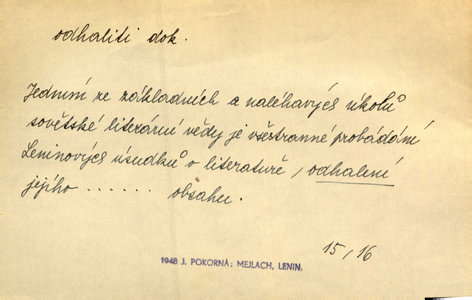 odhaliti dok.
Jedním ze základních a naléhavých úkolů
sovětské literární vědy je všestranné probádání
Leninových úsudků o literatuře, odhalení
jejího ...... obsahu.
15/16
1948 J. POKORNÁ; MEJLACH, LENIN.